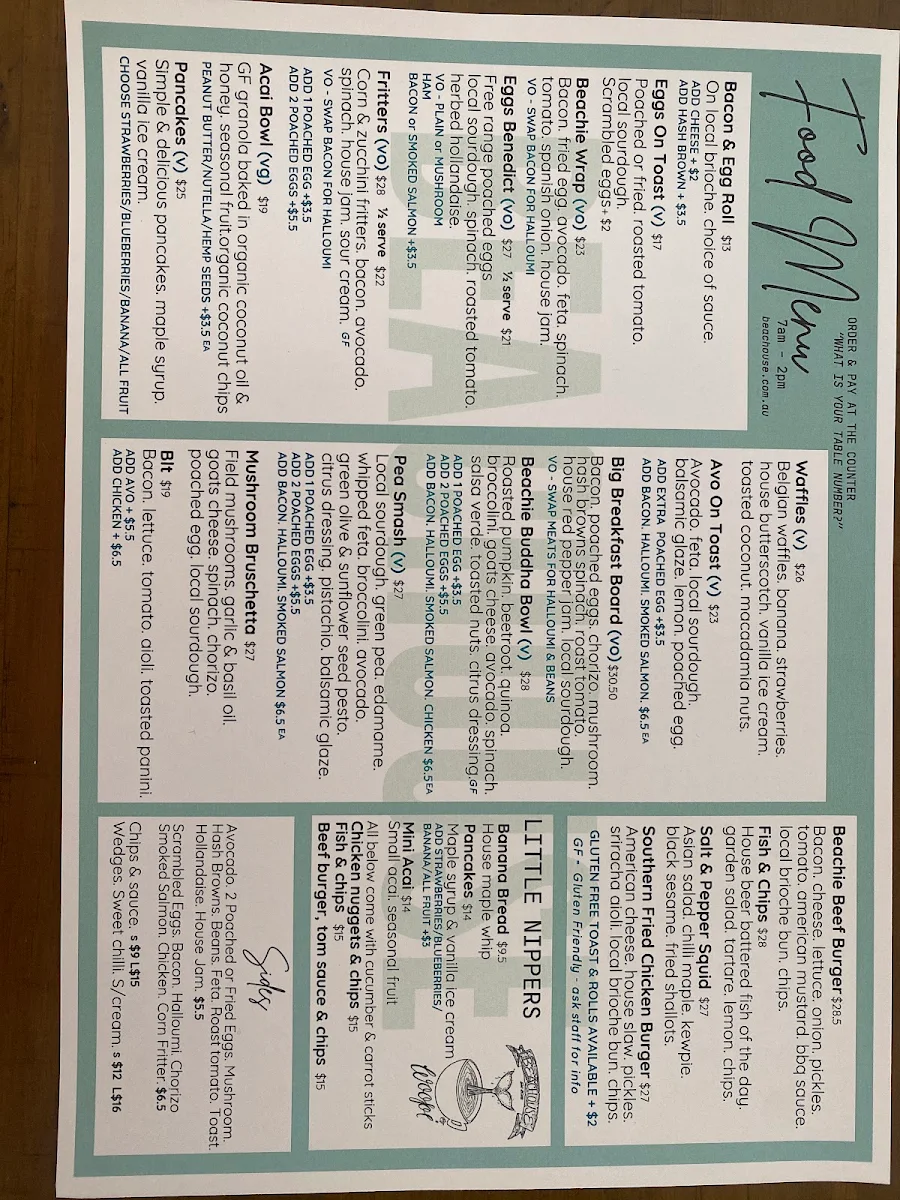 Food Menu
ORDER & PAY AT THE COUNTER
"WHAT IS YOUR TABLE NUMBER?"
7am - 2pm
beachouse.com.au
BEACHOUSE
Bacon & Egg Roll $13
On local brioche, choice of sauce.
ADD CHEESE + $2
ADD HASH BROWN + $3.5
Eggs On Toast (v) $17
Poached or fried, roasted tomato,
local sourdough.
Scrambled eggs+ $2
Beachie Wrap (vo) $23
Bacon, fried egg, avocado, feta, spinach,
tomato, spanish onion, house jam.
VO - SWAP BACON FOR HALLOUMI
Eggs Benedict (vo) $27 ½ serve $21
Free range poached eggs
local sourdough, spinach, roasted tomato,
herbed hollandaise.
VO - PLAIN or MUSHROOM
HAM
BACON or SMOKED SALMON +$3.5
Fritters (vo) $28 ½ serve $22
Corn & zucchini fritters, bacon, avocado,
spinach, house jam, sour cream. GF
VO - SWAP BACON FOR HALLOUMI
ADD 1 POACHED EGG +$3.5
ADD 2 POACHED EGGS +$5.5
Acai Bowl (vg) $19
GF granola baked in organic coconut oil &
honey, seasonal fruit,organic coconut chips
PEANUT BUTTER/NUTELLA/HEMP SEEDS +$3.5 EA
Pancakes (v) $25
Simple & delicious pancakes, maple syrup,
vanilla ice cream.
CHOOSE STRAWBERRIES/BLUEBERRIES/BANANA/ALL FRUIT
Waffles (v) $26
Belgian waffles, banana, strawberries,
house butterscotch, vanilla ice cream,
toasted coconut, macadamia nuts.
Avo On Toast (v) $23
Avocado, feta, local sourdough,
balsamic glaze, lemon, poached egg.
ADD EXTRA POACHED EGG +$3.5
ADD BACON, HALLOUMI, SMOKED SALMON, $6.5 EA
Big Breakfast Board (vo) $30.50
Bacon, poached eggs, chorizo, mushroom,
hash browns, spinach, roast tomato,
house red pepper jam, local sourdough.
VO - SWAP MEATS FOR HALLOUMI & BEANS
Beachie Buddha Bowl (v) $28
Roasted pumpkin, beetroot, quinoa,
broccolini, goats cheese, avocado, spinach,
salsa verde, toasted nuts, citrus dressing.GF
ADD 1 POACHED EGG +$3.5
ADD 2 POACHED EGGS +$5.5
ADD BACON, HALLOUMI, SMOKED SALMON, CHICKEN $6.5EA
Pea Smash (v) $27
Local sourdough, green pea, edamame,
whipped feta, broccolini, avocado,
green olive & sunflower seed pesto,
citrus dressing, pistachio, balsamic glaze.
ADD 1 POACHED EGG +$3.5
ADD 2 POACHED EGGS +$5.5
ADD BACON, HALLOUMI, SMOKED SALMON $6.5 EA
Mushroom Bruschetta $27
Field mushrooms, garlic & basil oil,
goats cheese, spinach, chorizo,
poached egg, local sourdough.
Blt $19
Bacon, lettuce, tomato, aioli, toasted panini.
ADD AVO + $5.5
ADD CHICKEN + $6.5
Beachie Beef Burger $28.5
Bacon, cheese, lettuce, onion, pickles,
tomato, american mustard, bbq sauce,
local brioche bun, chips.
Fish & Chips $28
House beer battered fish of the day,
garden salad, tartare, lemon, chips.
Salt & Pepper Squid $27
Asian salad, chilli maple, kewpie,
black sesame, fried shallots.
Southern Fried Chicken Burger $27
American cheese, house slaw, pickles,
sriracha aioli, local brioche bun, chips.
GLUTEN FREE TOAST & ROLLS AVAILABLE + $2
GF - Gluten Friendly - ask staff for info
LITTLE NIPPERS
Banana Bread $9.5
House maple whip
Pancakes $14
Maple syrup & vanilla ice cream
ADD STRAWBERRIES/BLUEBERRIES/
BANANA/ALL FRUIT +$3
Mini Acai $14
Small acai, seasonal fruit
All below come with cucumber & carrot sticks
Chicken nuggets & chips $15
Fish & chips $15
Beef burger, tom sauce & chips $15
Sides
Avocado, 2 Poached or Fried Eggs, Mushroom,
Hash Browns, Beans, Feta, Roast tomato, Toast,
Hollandaise, House Jam. $5.5
Scrambled Eggs, Bacon, Halloumi, Chorizo
Smoked Salmon, Chicken, Corn Fritter. $6.5
Chips & sauce. s $9 L$15
Wedges, Sweet chilli, S/cream. s $12 L$16